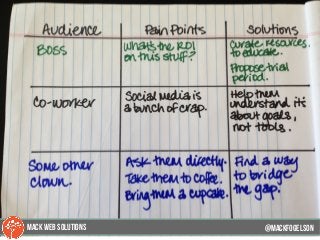 Audience Pain Points Solutions
Boss
What's the ROI
on this stuff?
Curate resources
to educate.
Propose trial
period.
Co-worker
Social Media is
a bunch of crap.
Help them
understand it's
about goals,
not tools.
Some other
clown.
Ask them directly.
Take them to coffee.
Bring them a cupcake.
Find a way
to bridge
the gap.
MACK WEB SOLUTIONS
@MACKFOGELSON